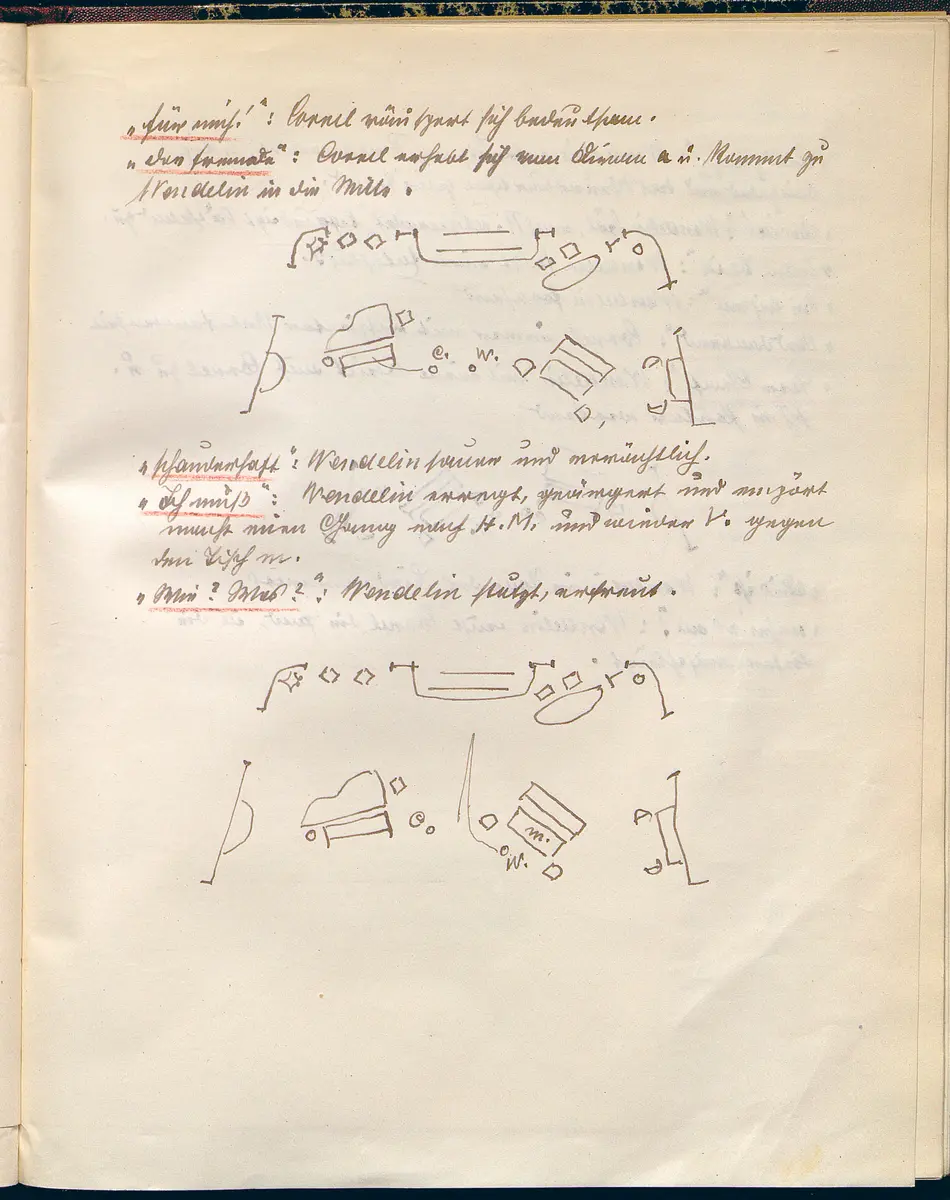 „für mich!“: Cornil räuspert sich bedeutsam.
„der fremde“: Cornil erhebt sich vom Diwan a u. kommt zu
Wendelin in die Mitte.
C. W.
„schauderhaft“: Wendelin sauer und verächtlich.
„Ich muß“: Wendelin erregt, geärgert und empört
macht einen Gang nach H. M. und wieder V. gegen
den Tisch m.
„Wie? Was?“: Wendelin stutzt, erfreut.
C.
m.
W.